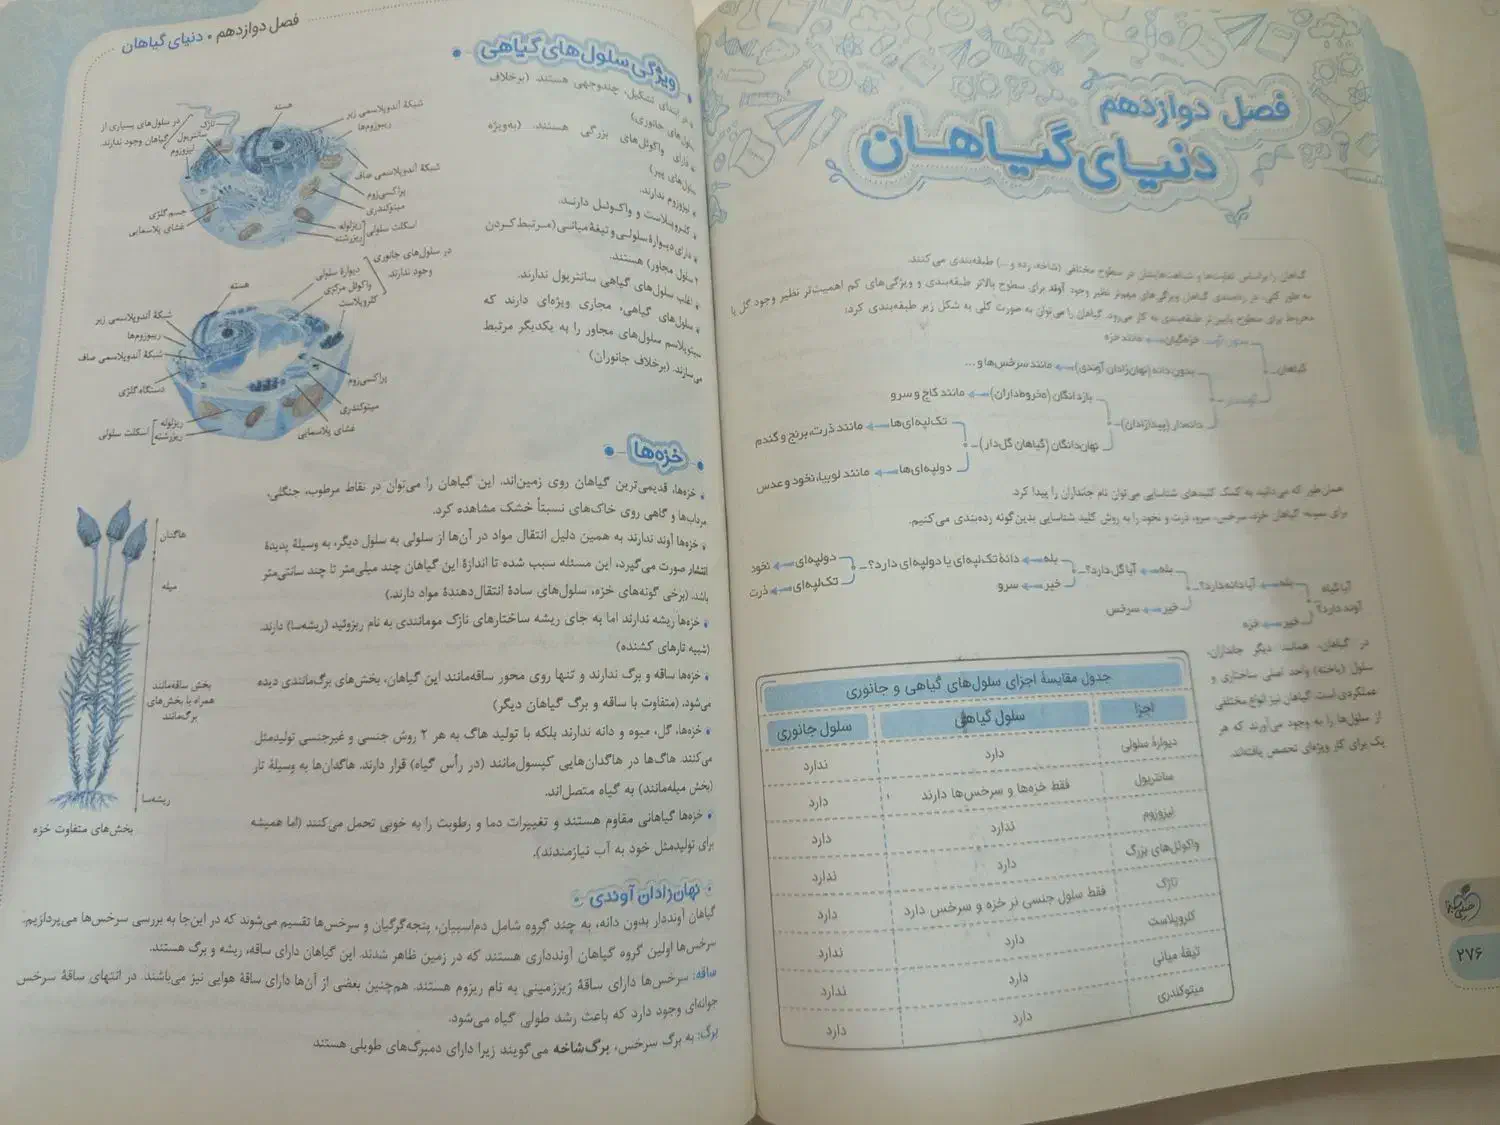 فصل دوازدهم
دنیای گیاهان
گیاهان را براساس تفاوت‌ها و شباهت‌هایشان در سطوح مختلفی (شاخه، رده و ...) طبقه‌بندی می‌کنند.
به طور کلی، در رده‌بندی گیاهان ویژگی‌های مهم‌تر نظیر وجود آوند برای سطوح بالاتر طبقه‌بندی و ویژگی‌های کم اهمیت‌تر نظیر وجود گل یا
مخروط برای سطوح پایین‌تر طبقه‌بندی به کار می‌رود. گیاهان را می‌توان به صورت کلی به شکل زیر طبقه‌بندی کرد:
گیاهان
بدون آوند خزه‌گیان مانند خزه
آونددار
بدون دانه (نهان‌زادان آوندی) مانند سرخس‌ها و ...
دانه‌دار (پیدازادان)
بازدانگان (مخروط‌داران) مانند کاج و سرو
نهان‌دانگان (گیاهان گل‌دار)
تک‌لپه‌ای‌ها مانند ذرت، برنج و گندم
دولپه‌ای‌ها مانند لوبیا، نخود و عدس
همان‌طور که می‌دانید به کمک کلیدهای شناسایی می‌توان نام جانداران را پیدا کرد.
برای نمونه گیاهان خزه، سرخس، سرو، ذرت و نخود را به روش کلید شناسایی بدین‌گونه رده‌بندی می‌کنیم.
آیا گیاه
آوند دارد؟
بله آیا دانه دارد؟
خیر خزه
بله آیا گل دارد؟
خیر سرخس
بله دانهٔ تک‌لپه‌ای یا دولپه‌ای دارد؟
خیر سرو
دولپه‌ای نخود
تک‌لپه‌ای ذرت
در گیاهان، همانند دیگر جانداران،
سلول (یاخته) واحد اصلی ساختاری و
عملکردی است. گیاهان نیز انواع مختلفی
از سلول‌ها را به وجود می‌آورند که هر
یک برای کار ویژه‌ای تخصص یافته‌اند.
جدول مقایسهٔ اجزای سلول‌های گیاهی و جانوری
اجزا سلول گیاهی سلول جانوری
دیوارهٔ سلولی دارد ندارد
سانتریول فقط خزه‌ها و سرخس‌ها دارند دارد
لیزوزوم ندارد دارد
واکوئل‌های بزرگ دارد ندارد
تاژک فقط سلول جنسی نر خزه و سرخس دارد دارد
کلروپلاست دارد ندارد
تیغهٔ میانی دارد ندارد
میتوکندری دارد دارد
۲۷۶
فصل دوازدهم • دنیای گیاهان
ویژگی سلول‌های گیاهی
در ابتدای تشکیل، چندوجهی هستند. (برخلاف
سلول‌های جانوری)
دارای واکوئل‌های بزرگی هستند. (به‌ویژه
سلول‌های پیر)
لیزوزوم ندارند.
کلروپلاست و واکوئل دارند.
دارای دیوارهٔ سلولی و تیغهٔ میانی (مرتبط کردن
۲ سلول مجاور) هستند.
اغلب سلول‌های گیاهی سانتریول ندارند.
سلول‌های گیاهی، مجاری ویژه‌ای دارند که
سیتوپلاسم سلول‌های مجاور را به یکدیگر مرتبط
می‌سازند. (برخلاف جانوران)
هسته
شبکهٔ آندوپلاسمی زبر
ریبوزوم‌ها
در سلول‌های بسیاری از
گیاهان وجود ندارند.
تاژک
سانتریول
لیزوزوم
شبکهٔ آندوپلاسمی صاف
پراکسی‌زوم
میتوکندری
جسم گلژی
غشای پلاسمایی
ریزلوله
ریزرشته
اسکلت سلولی
در سلول‌های جانوری
وجود ندارند.
دیوارهٔ سلولی
واکوئل مرکزی
کلروپلاست
هسته
شبکهٔ آندوپلاسمی زبر
ریبوزوم‌ها
شبکهٔ آندوپلاسمی صاف
دستگاه گلژی
پراکسی‌زوم
میتوکندری
غشای پلاسمایی
ریزلوله
ریزرشته
اسکلت سلولی
خزه‌ها
خزه‌ها، قدیمی‌ترین گیاهان روی زمین‌اند. این گیاهان را می‌توان در نقاط مرطوب، جنگلی،
مرداب‌ها و گاهی روی خاک‌های نسبتاً خشک مشاهده کرد.
خزه‌ها آوند ندارند به همین دلیل انتقال مواد در آن‌ها از سلولی به سلول دیگر، به وسیلهٔ پدیدهٔ
انتشار صورت می‌گیرد، این مسئله سبب شده تا اندازهٔ این گیاهان چند میلی‌متر تا چند سانتی‌متر
باشد. (برخی گونه‌های خزه، سلول‌های سادهٔ انتقال‌دهندهٔ مواد دارند.)
خزه‌ها ریشه ندارند اما به جای ریشه ساختارهای نازک مومانندی به نام ریزوئید (ریشه‌سا) دارند.
(شبیه تارهای کشنده)
خزه‌ها ساقه و برگ ندارند و تنها روی محور ساقه‌مانند این گیاهان، بخش‌های برگ‌مانندی دیده
می‌شود. (متفاوت با ساقه و برگ گیاهان دیگر)
خزه‌ها، گل، میوه و دانه ندارند بلکه با تولید هاگ به هر ۲ روش جنسی و غیرجنسی تولیدمثل
می‌کنند. هاگ‌ها در هاگدان‌هایی کپسول‌مانند (در رأس گیاه) قرار دارند. هاگدان‌ها به وسیلهٔ تار
(بخش میله‌مانند) به گیاه متصل‌اند.
خزه‌ها گیاهانی مقاوم هستند و تغییرات دما و رطوبت را به خوبی تحمل می‌کنند (اما همیشه
برای تولیدمثل خود به آب نیازمندند).
هاگدان
میله
بخش ساقه‌مانند
همراه با بخش‌های
برگ‌مانند
ریشه‌سا
بخش‌های متفاوت خزه
نهان‌زادان آوندی
گیاهان آونددار بدون دانه، به چند گروه شامل دم‌اسبیان، پنجه‌گرگیان و سرخس‌ها تقسیم می‌شوند که در این‌جا به بررسی سرخس‌ها می‌پردازیم.
سرخس‌ها اولین گروه گیاهان آوندداری هستند که در زمین ظاهر شدند. این گیاهان دارای ساقه، ریشه و برگ هستند.
ساقه: سرخس‌ها دارای ساقهٔ زیرزمینی به نام ریزوم هستند. هم‌چنین بعضی از آن‌ها دارای ساقهٔ هوایی نیز می‌باشند. در انتهای ساقهٔ سرخس
جوانه‌ای وجود دارد که باعث رشد طولی گیاه می‌شود.
برگ: به برگ سرخس، برگ‌شاخه می‌گویند زیرا دارای دمبرگ‌های طویلی هستند